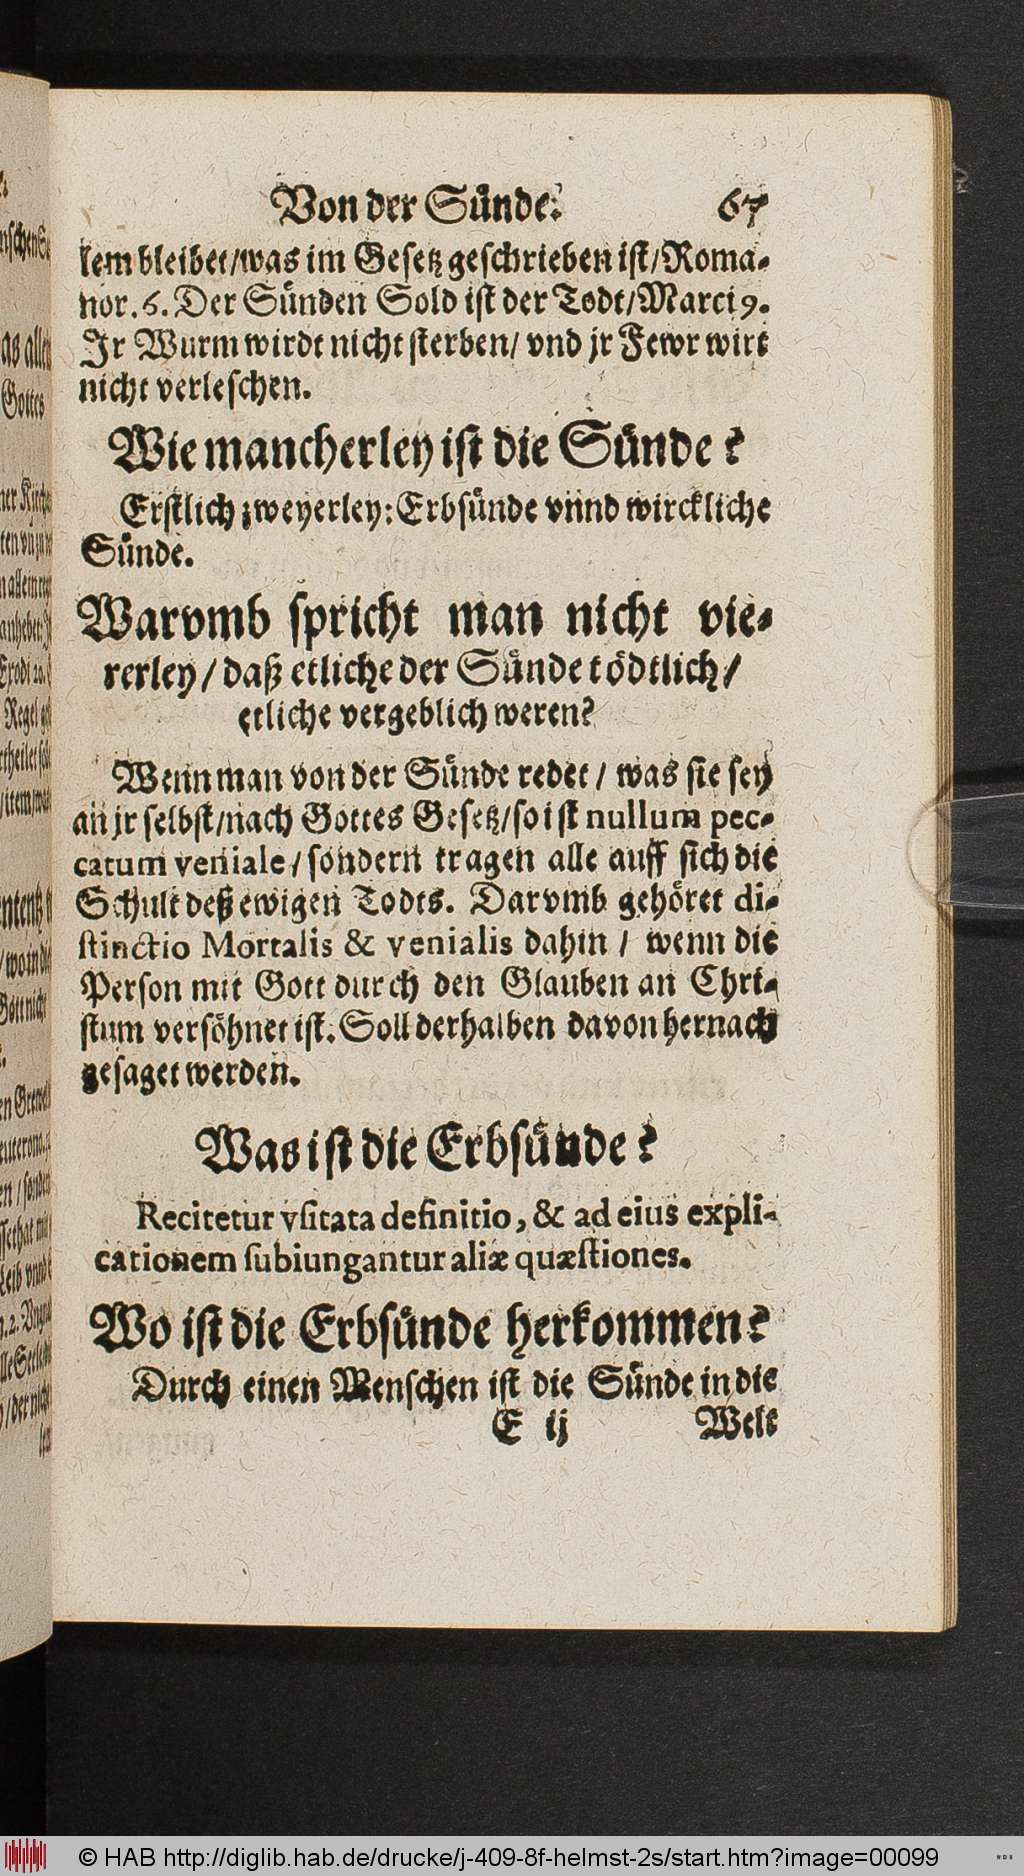 Von der Sünde. 67
lem bleibet/was im Gesetz geschrieben ist/Roma-
nor. 6. Der Sünden Sold ist der Todt/Marci 9.
Jr Wurm wirdt nicht sterben/ vnd jr Fewr wirt
nicht verleschen.
Wie mancherley ist die Sünde?
Erstlich zweyerley: Erbsünde vnnd wirckliche
Sünde.
Warvmb spricht man nicht vie-
rerley/daß etliche der Sünde tödtlich/
etliche vergeblich weren?
Wenn man von der Sünde redet / was sie sey
an jr selbst/nach Gottes Gesetz/so ist nullum pec-
catum veniale/sondern tragen alle auff sich die
Schult deß ewigen Todts. Darvmb gehöret di-
stinctio Mortalis & venialis dahin / wenn die
Person mit Gott durch den Glauben an Chri-
stum versöhnet ist. Soll derhalben davon hernach
gesaget werden.
Was ist die Erbsünde?
Recitetur vsitata definitio, & ad eius expli-
cationem subiungantur aliæ quæstiones.
Wo ist die Erbsünde herkommen?
Durch einen Menschen ist die Sünde in die
E ij Welt
© HAB http://diglib.hab.de/drucke/j-409-8f-helmst-2s/start.htm?image=00099